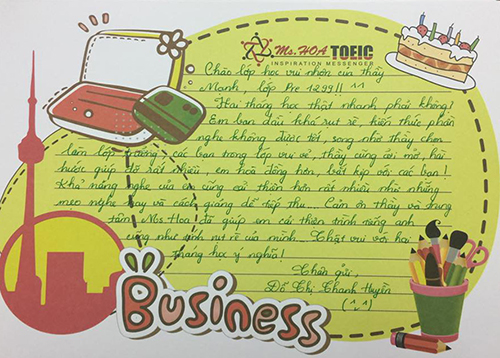 Ms. HOA TOEIC
INSPIRATION MESSENGER
Chào lớp học vui nhộn của thầy
Mạnh, lớp Pre 1299!! ^^
Hai tháng học thật nhanh phải không!
Em ban đầu khá rụt rè, kiến thức phần
nghe không được tốt, song nhờ thầy chọn
làm lớp trưởng, các bạn trong lớp vui vẻ, thầy cũng cởi mở, hài
hước giúp đỡ rất nhiều, em hòa đồng hơn, bắt kịp với các bạn!
Khả năng nghe của em cũng cải thiện hơn rất nhiều nhờ những
mẹo nghe hay và cách giảng dễ tiếp thu... Cảm ơn thầy và trung
tâm Ms Hoa đã giúp em cải thiện trình tiếng anh
cũng như tính rụt rè của mình... Thật vui với hai
tháng học ý nghĩa!
Chân gửi,
Đỗ Thị Thanh Huyền
(^.^)
Business